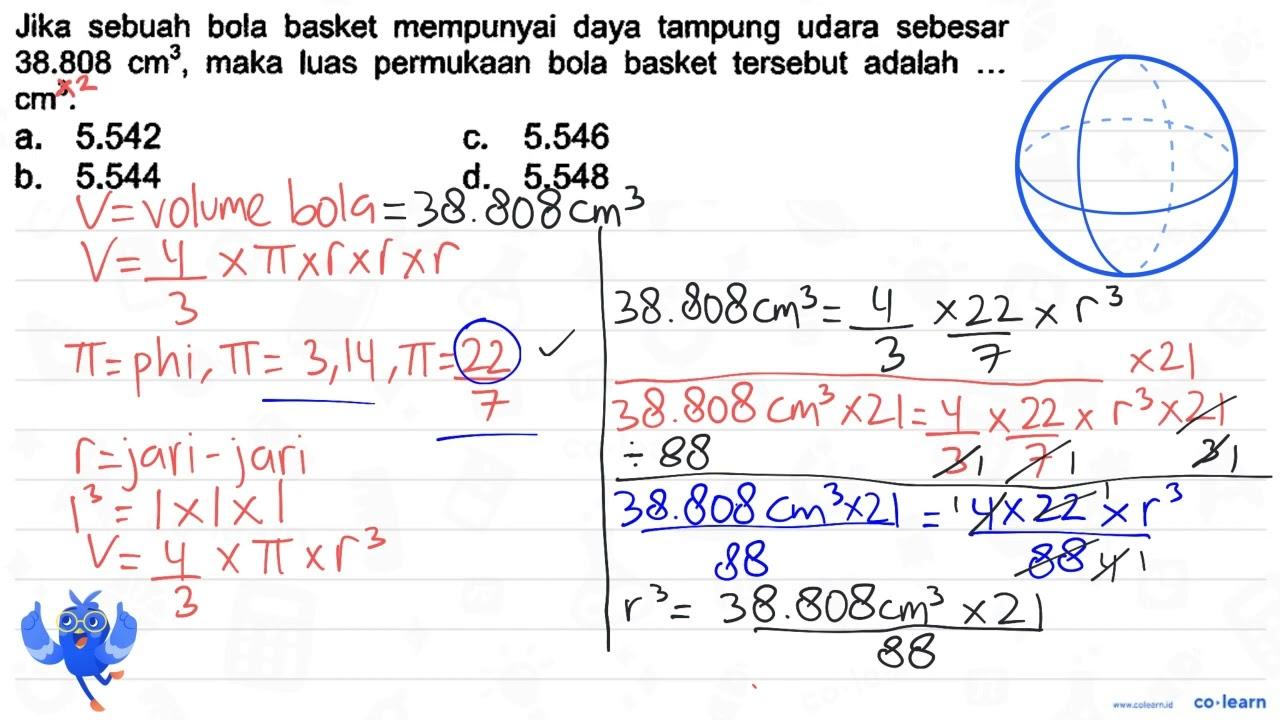 Jika sebuah bola basket mempunyai daya tampung udara sebesar
38.808 cm³, maka luas permukaan bola basket tersebut adalah ...
cm ×2.
a. 5.542
b. 5.544
c. 5.546
d. 5.548
V = volume bola = 38.808 cm³
V = 4/3 × π × r × r × r
π = phi, π = 3,14, π = 22/7 ✓
r = jari-jari
r³ = r × r × r
V = 4/3 × π × r³
38.808 cm³ = 4/3 × 22/7 × r³
×21
38.808 cm³ × 21 = 4/3 1 × 22/7 1 × r³ × 21
3 1
÷ 88
38.808 cm³ × 21 / 88 = 1 4 × 22 1 × r³ / 88 4 1
r³ = 38.808 cm³ × 21 / 88
www.colearn.id co·learn